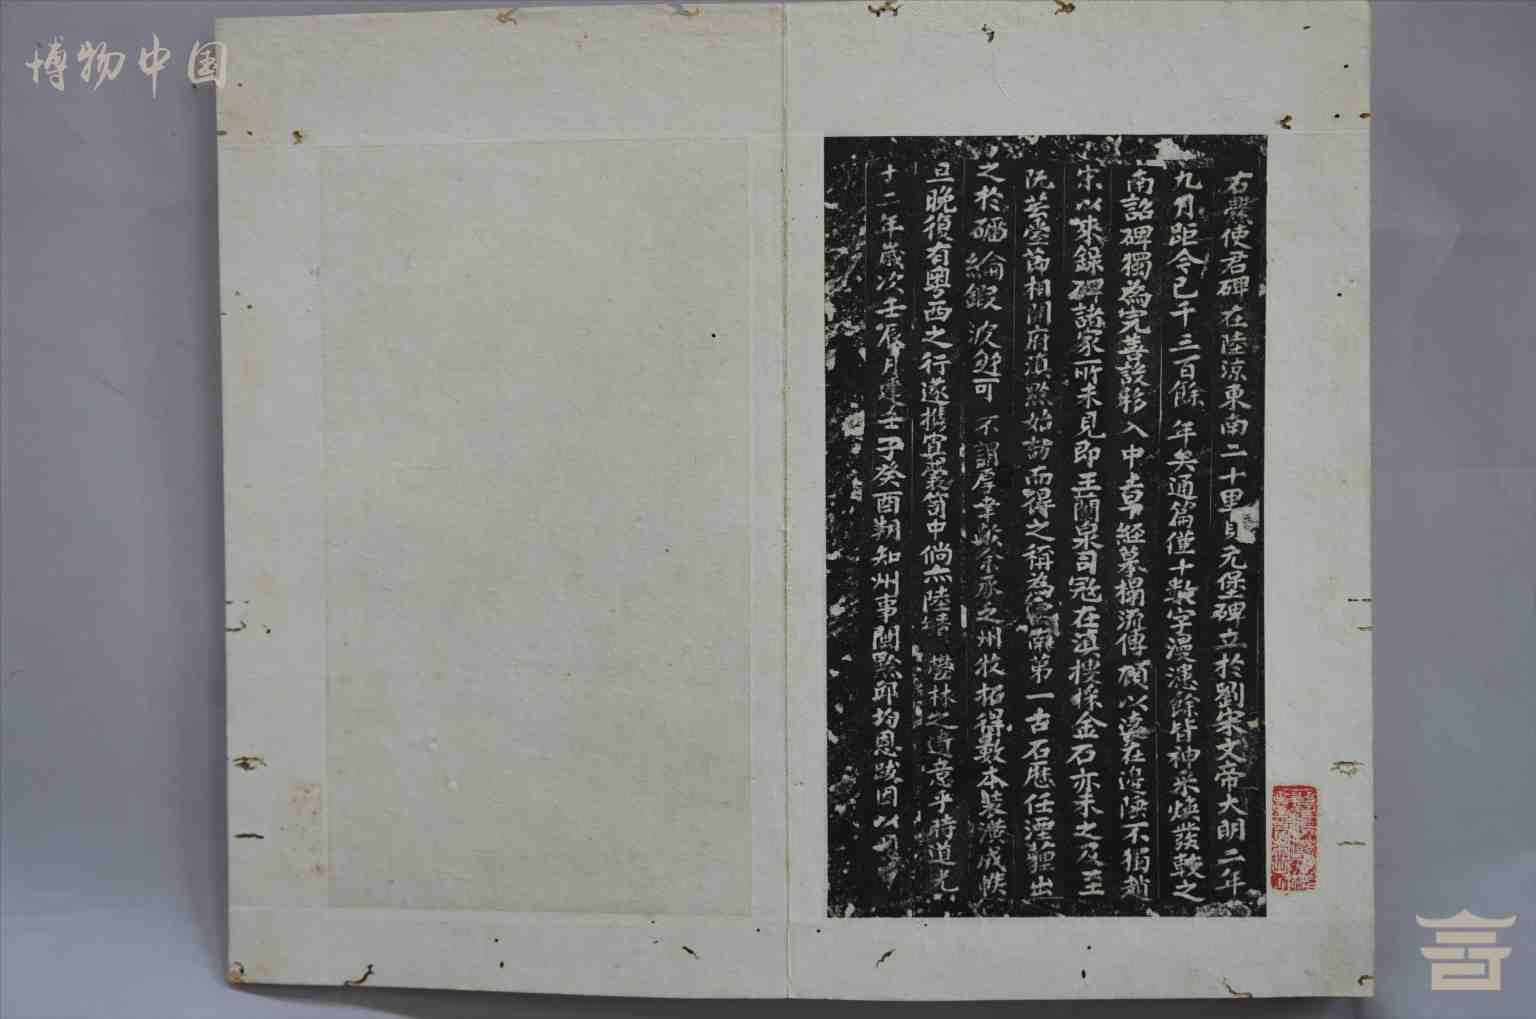 博物中国
右爨使君碑在陸涼東南二十里貝元堡碑立於劉宋文帝大明二年
九月距今已千三百餘年矣通篇僅十數字漫漶餘皆神采煥發較之
南詔碑獨為完善設移入中土早經摹搨流傳顧以遠在邊陲不獨趙
宋以來錄碑諸家所未見即王蘭泉司寇在滇搜採金石亦未之及至
阮芸臺節相開府滇黔始訪而得之稱為滇南第一古石歷任湮薶出
之於 可不謂厚幸歟余承乏州牧拓得數本裝潢成帙
旦晚復有粵西之行遂携置裝笥中倘亦陸績鬱林之遺意乎時道光
十二年歲次壬辰月建壬子癸酉朔知州事閩黟邱均恩跋因以